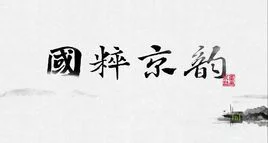 國粹京韵